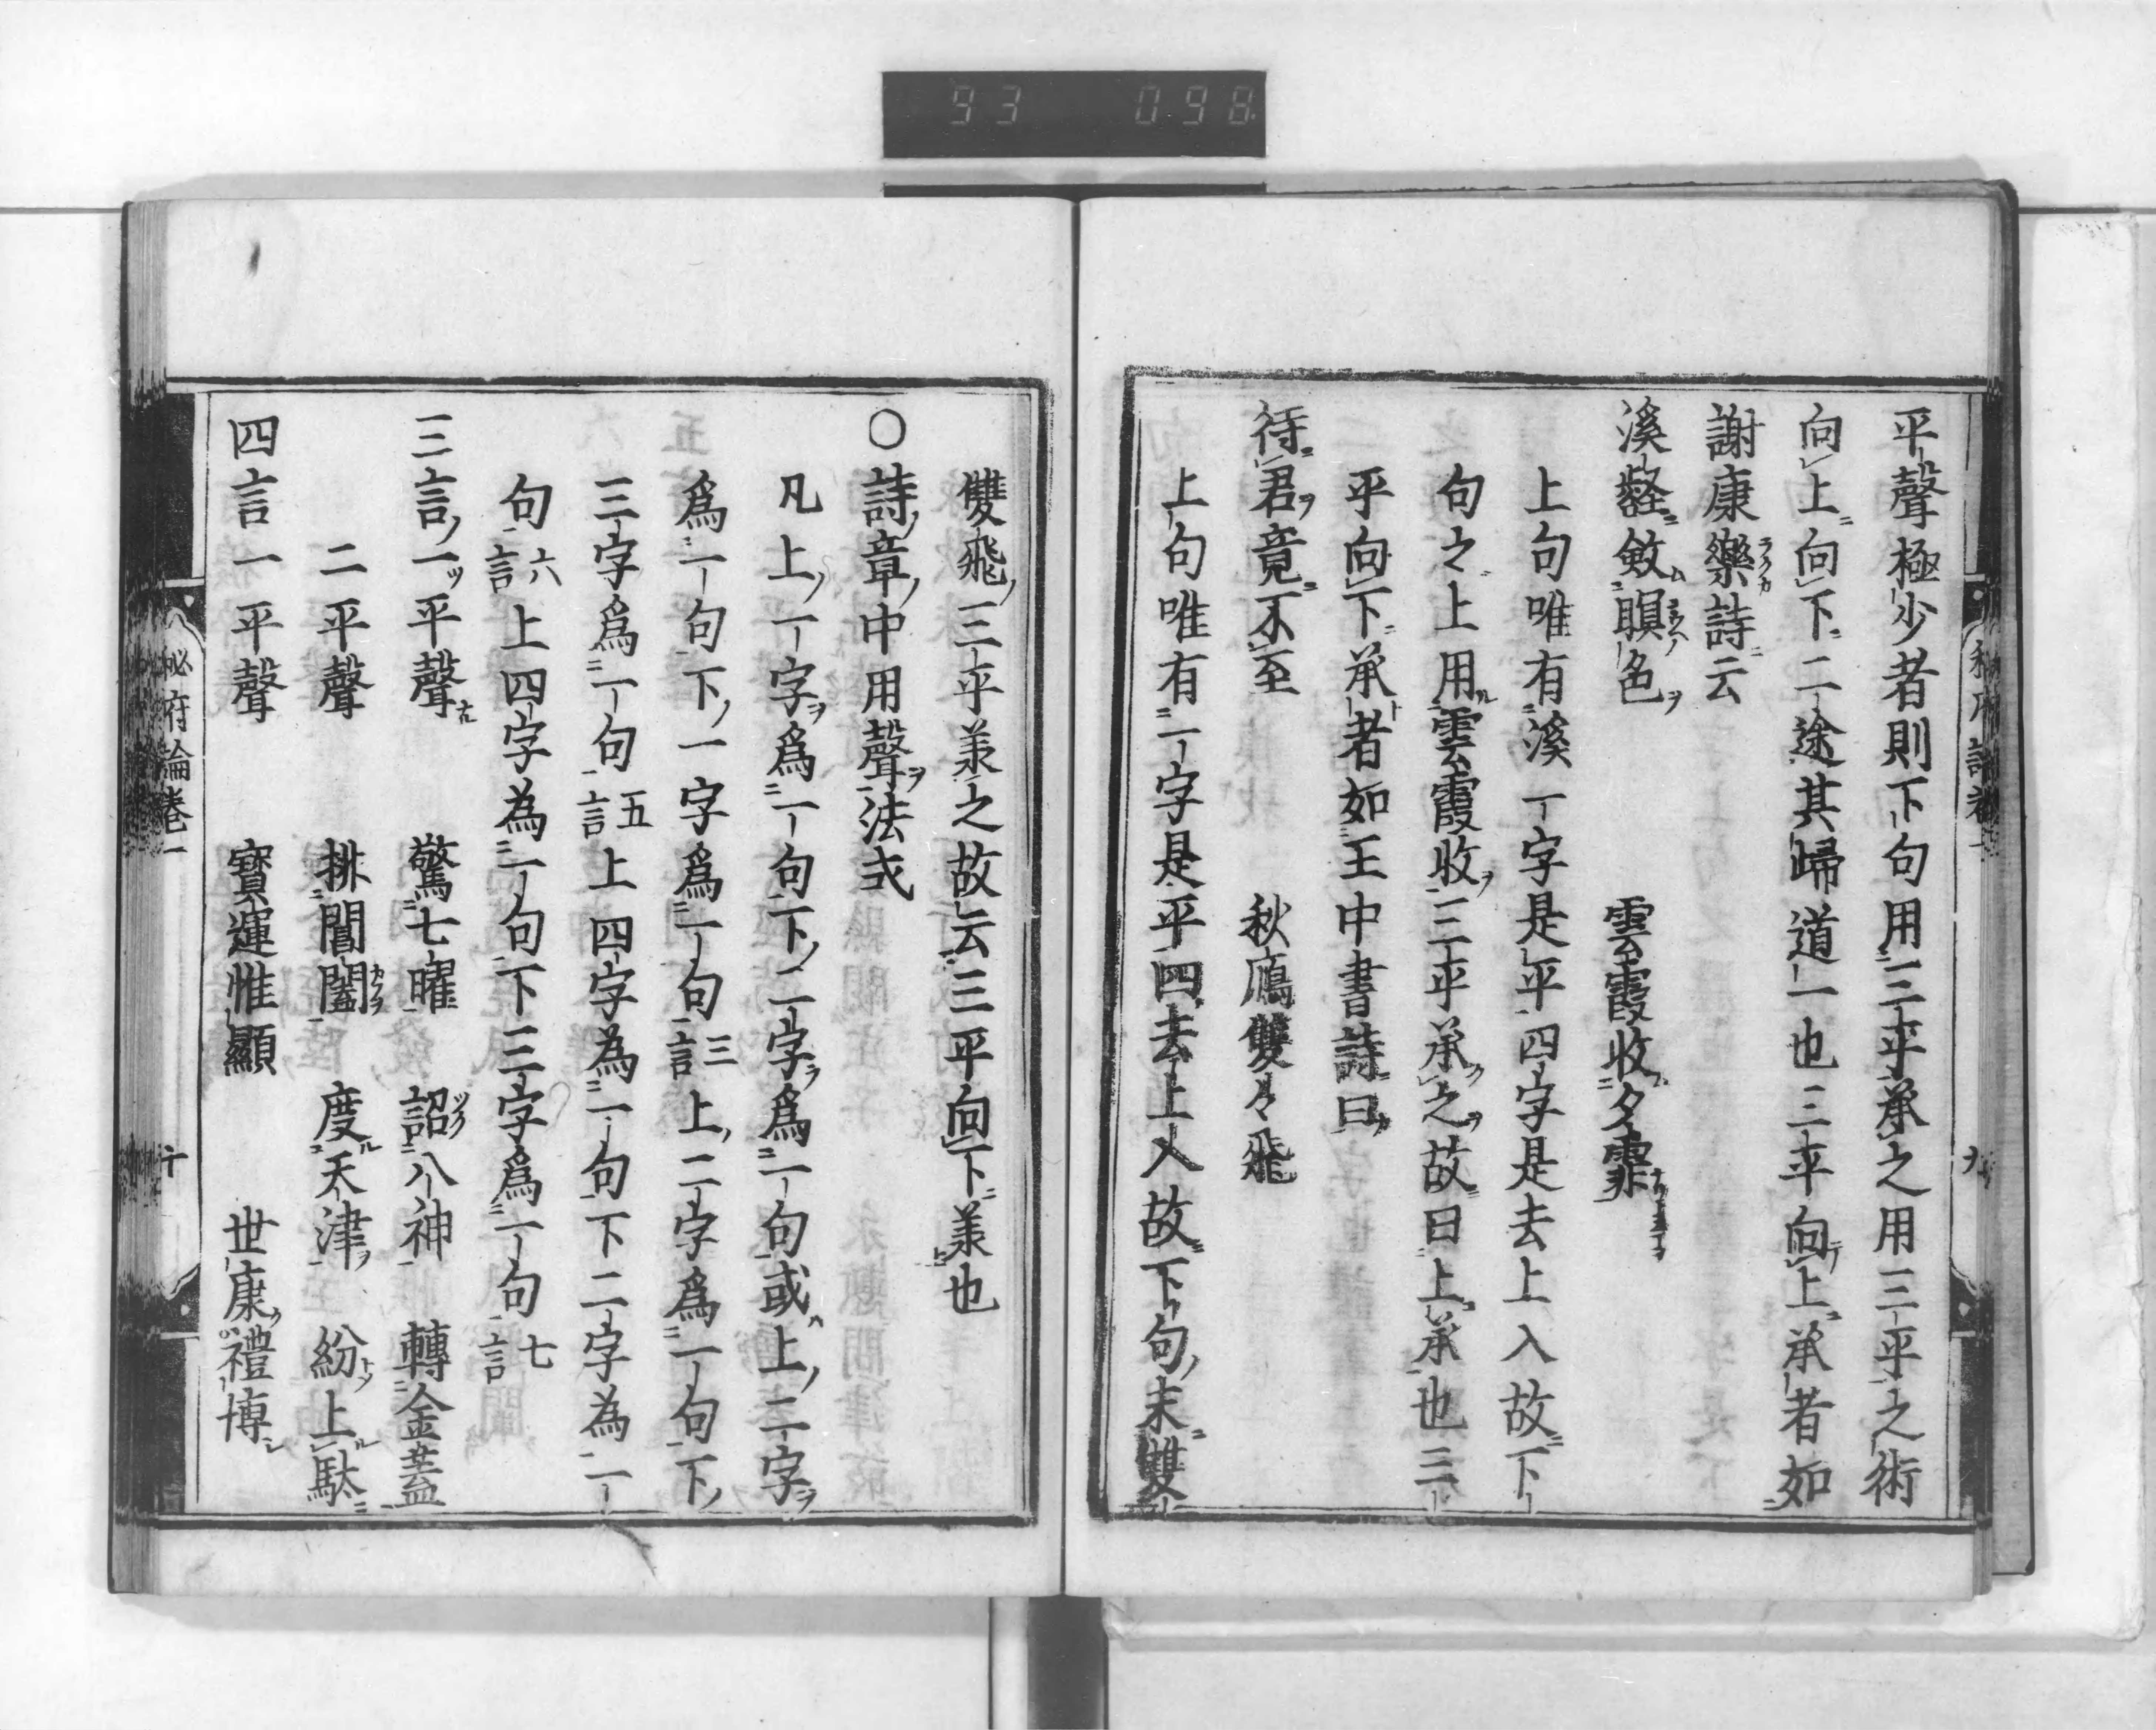 93 098
平聲極少者則下句用三平承之用三平之術
向上向下二途其歸道一也三平向上承者如
謝康樂詩云
溪壑斂暝色 雲霞收夕霏
上句唯有溪一字是平四字是去上入故下
句之上用雲霞收三平承之故曰上承也三
平向下承者如王中書詩曰
待君竟不至 秋鴈雙々飛
上句唯有一字是平四去上入故下句末雙
九
雙飛三平羕之故云三平向下羕也
○詩章中用聲法式
凡上一字爲一句下二字爲一句或上二字
爲一句下一字爲一句三言上二字爲一句下
三字爲一句五言上四字為一句下二字為一
句六言上四字為一句下三字爲一句七言
三言一平聲 驚七曜 詔八神 轉金蓋
二平聲 排閶闔 度天津 紛上馱
四言一平聲 寶運惟顯 世康禮博
秘府論卷一
十